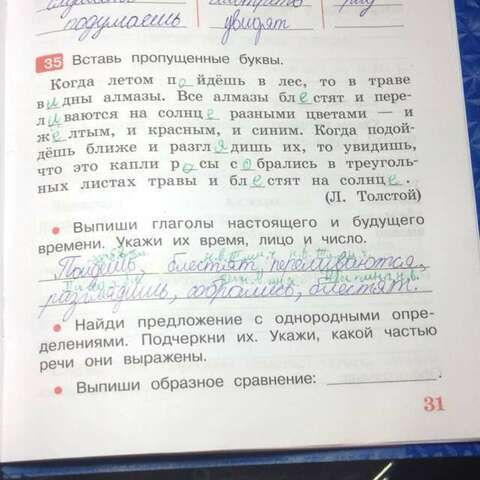 подумаешь увидят
35 Вставь пропущенные буквы.
Когда летом пойдёшь в лес, то в траве
видны алмазы. Все алмазы блестят и пере-
ливаются на солнце разными цветами — и
жёлтым, и красным, и синим. Когда подой-
дёшь ближе и разглядишь их, то увидишь,
что это капли росы собрались в треуголь-
ных листах травы и блестят на солнце.
(Л. Толстой)
• Выпиши глаголы настоящего и будущего
времени. Укажи их время, лицо и число.
Пойдёшь, блестят, переливаются,
разглядишь, собрались, блестят.
• Найди предложение с однородными опре-
делениями. Подчеркни их. Укажи, какой частью
речи они выражены.
• Выпиши образное сравнение:
31